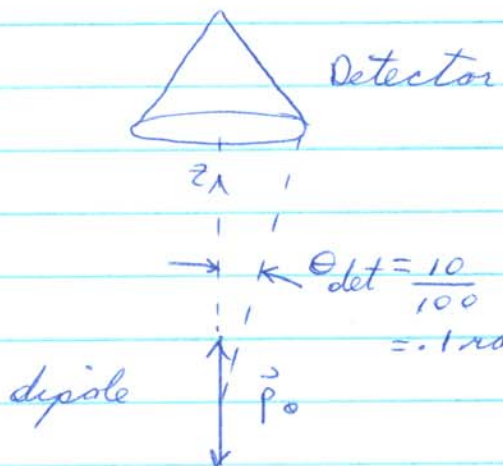 Detector
z
θdet = 10
100
= .1 rad
dipole
p⃗o